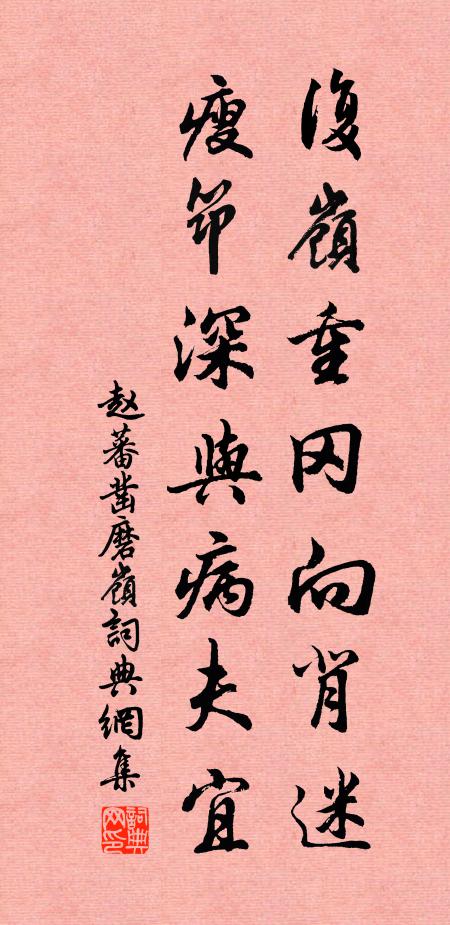 復嶺重冈向背迷
瘦筇深與病夫宜
赵蕃凿磨嶺詞典網集
詞典网印